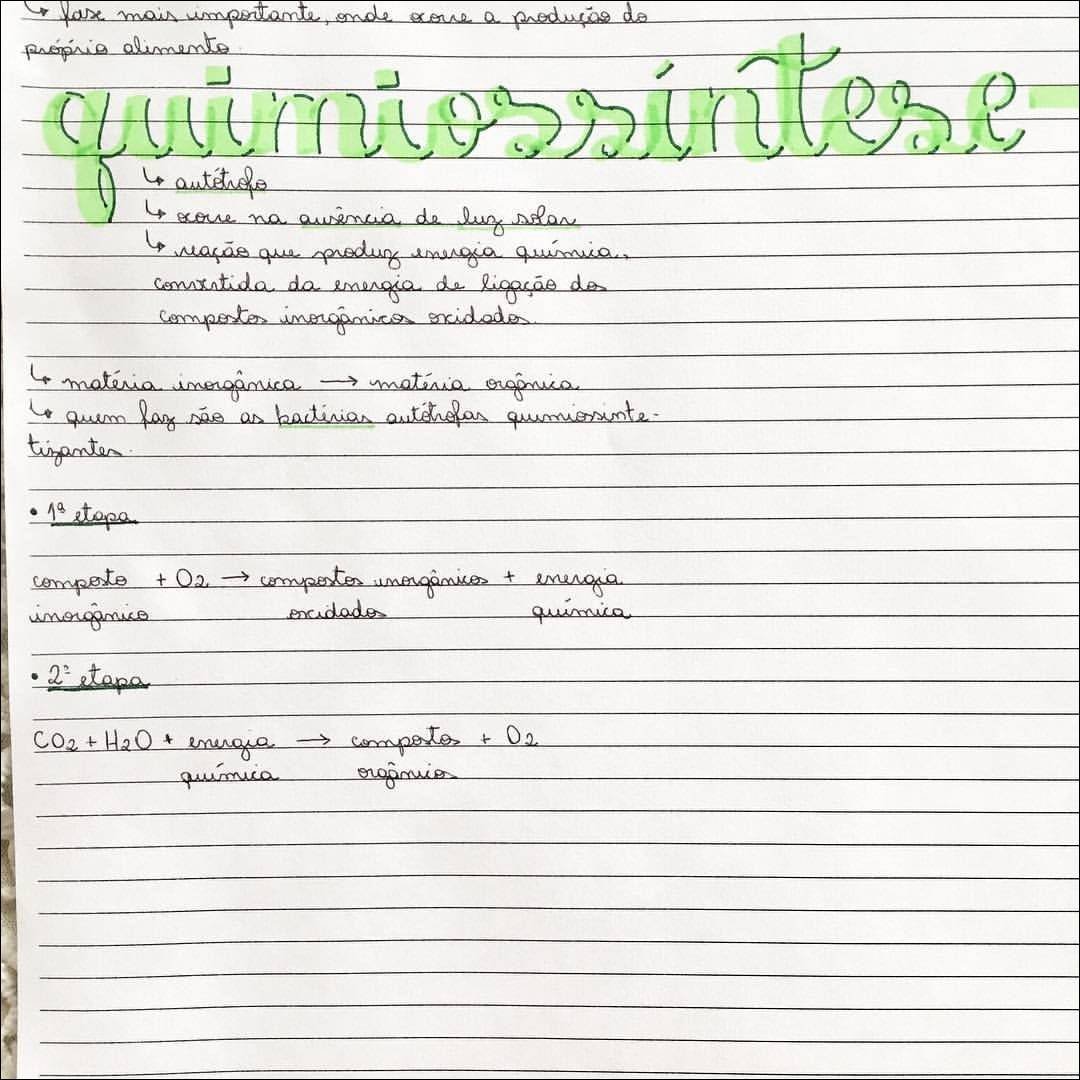 ↳ fase mais importante, onde ocorre a produção do
próprio alimento.
quimiossíntese
↳ autótrofo
↳ ocorre na ausência de luz solar
↳ reação que produz energia química,
convertida da energia de ligação dos
compostos inorgânicos oxidados.
↳ matéria inorgânica → matéria orgânica
↳ quem faz são as bactérias autótrofas quimiossinte-
tizantes.
• 1ª etapa
composto + O2 → compostos inorgânicos + energia
inorgânico oxidados química
• 2ª etapa
CO2 + H2O + energia → compostos + O2
química orgânicos